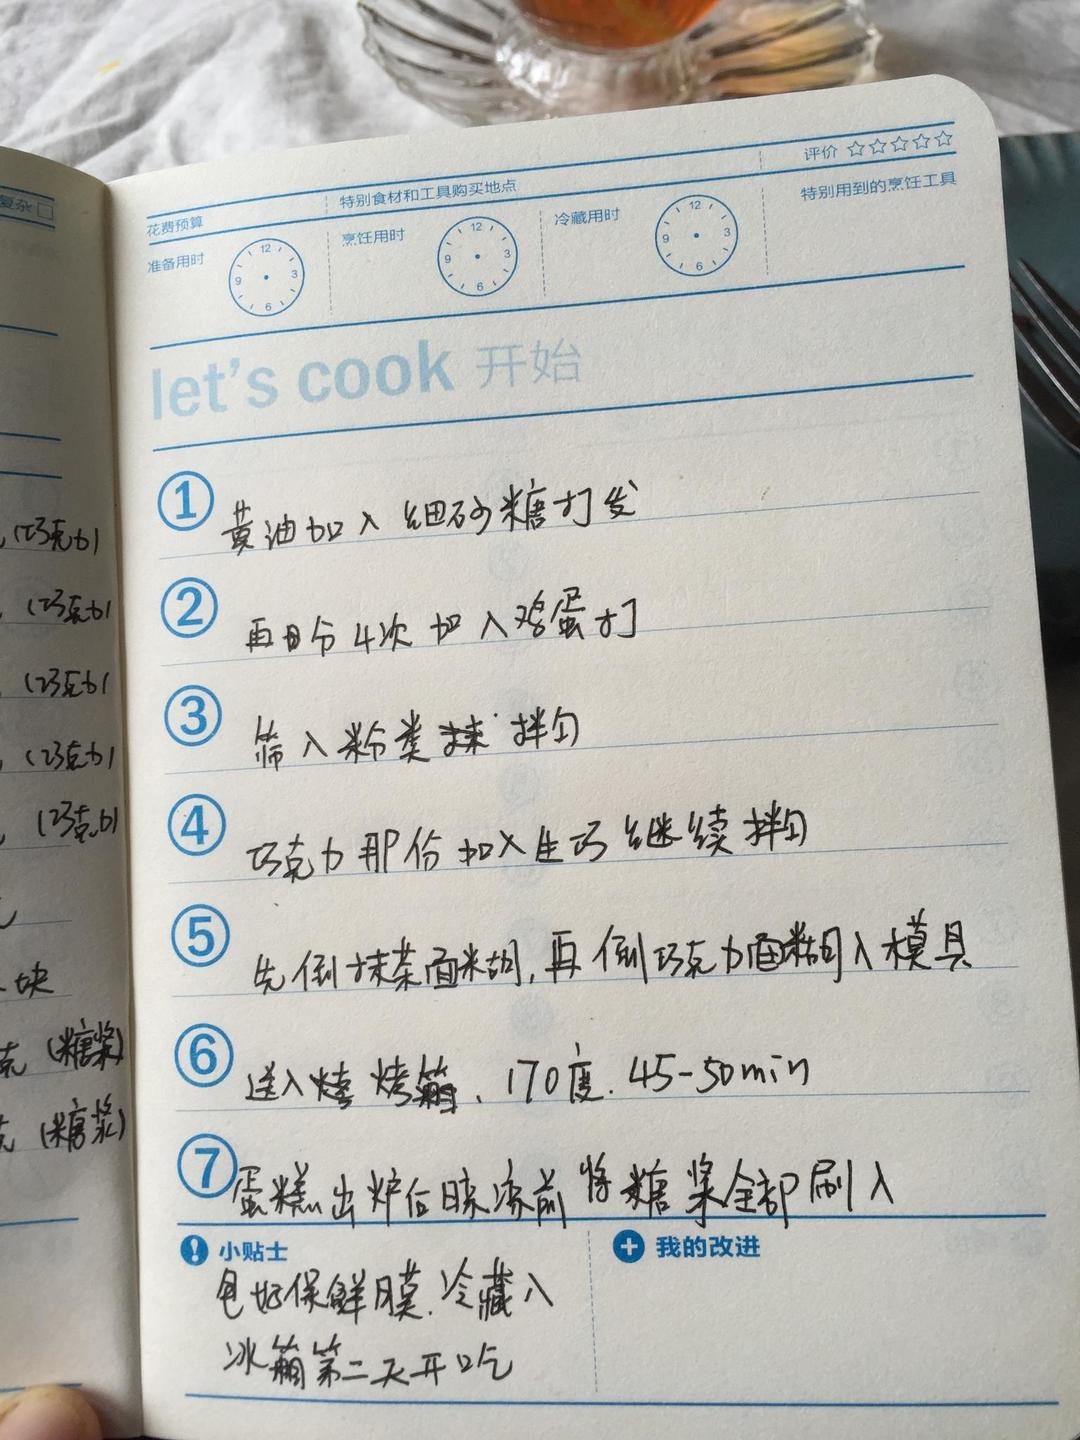 复杂
(巧克力)
(巧克力)
(巧克力)
(巧克力)
(巧克力)
块
克 (糖浆)
克 (糖浆)
花费预算 特别食材和工具购买地点 评价 ☆☆☆☆☆
准备用时 12 3 6 9 烹饪用时 12 3 6 9 冷藏用时 12 3 6 9 特别用到的烹饪工具
let's cook 开始
① 黄油加入细砂糖打发
② 再分4次加入鸡蛋打
③ 筛入粉类 拌匀
④ 巧克力那份加入生巧继续拌匀
⑤ 先倒抹茶面糊,再倒巧克力面糊入模具
⑥ 送入烤箱、170度.45-50min
⑦ 蛋糕出炉后晾凉前将糖浆全部刷入
小贴士 我的改进
包好保鲜膜.冷藏入
冰箱第二天开吃